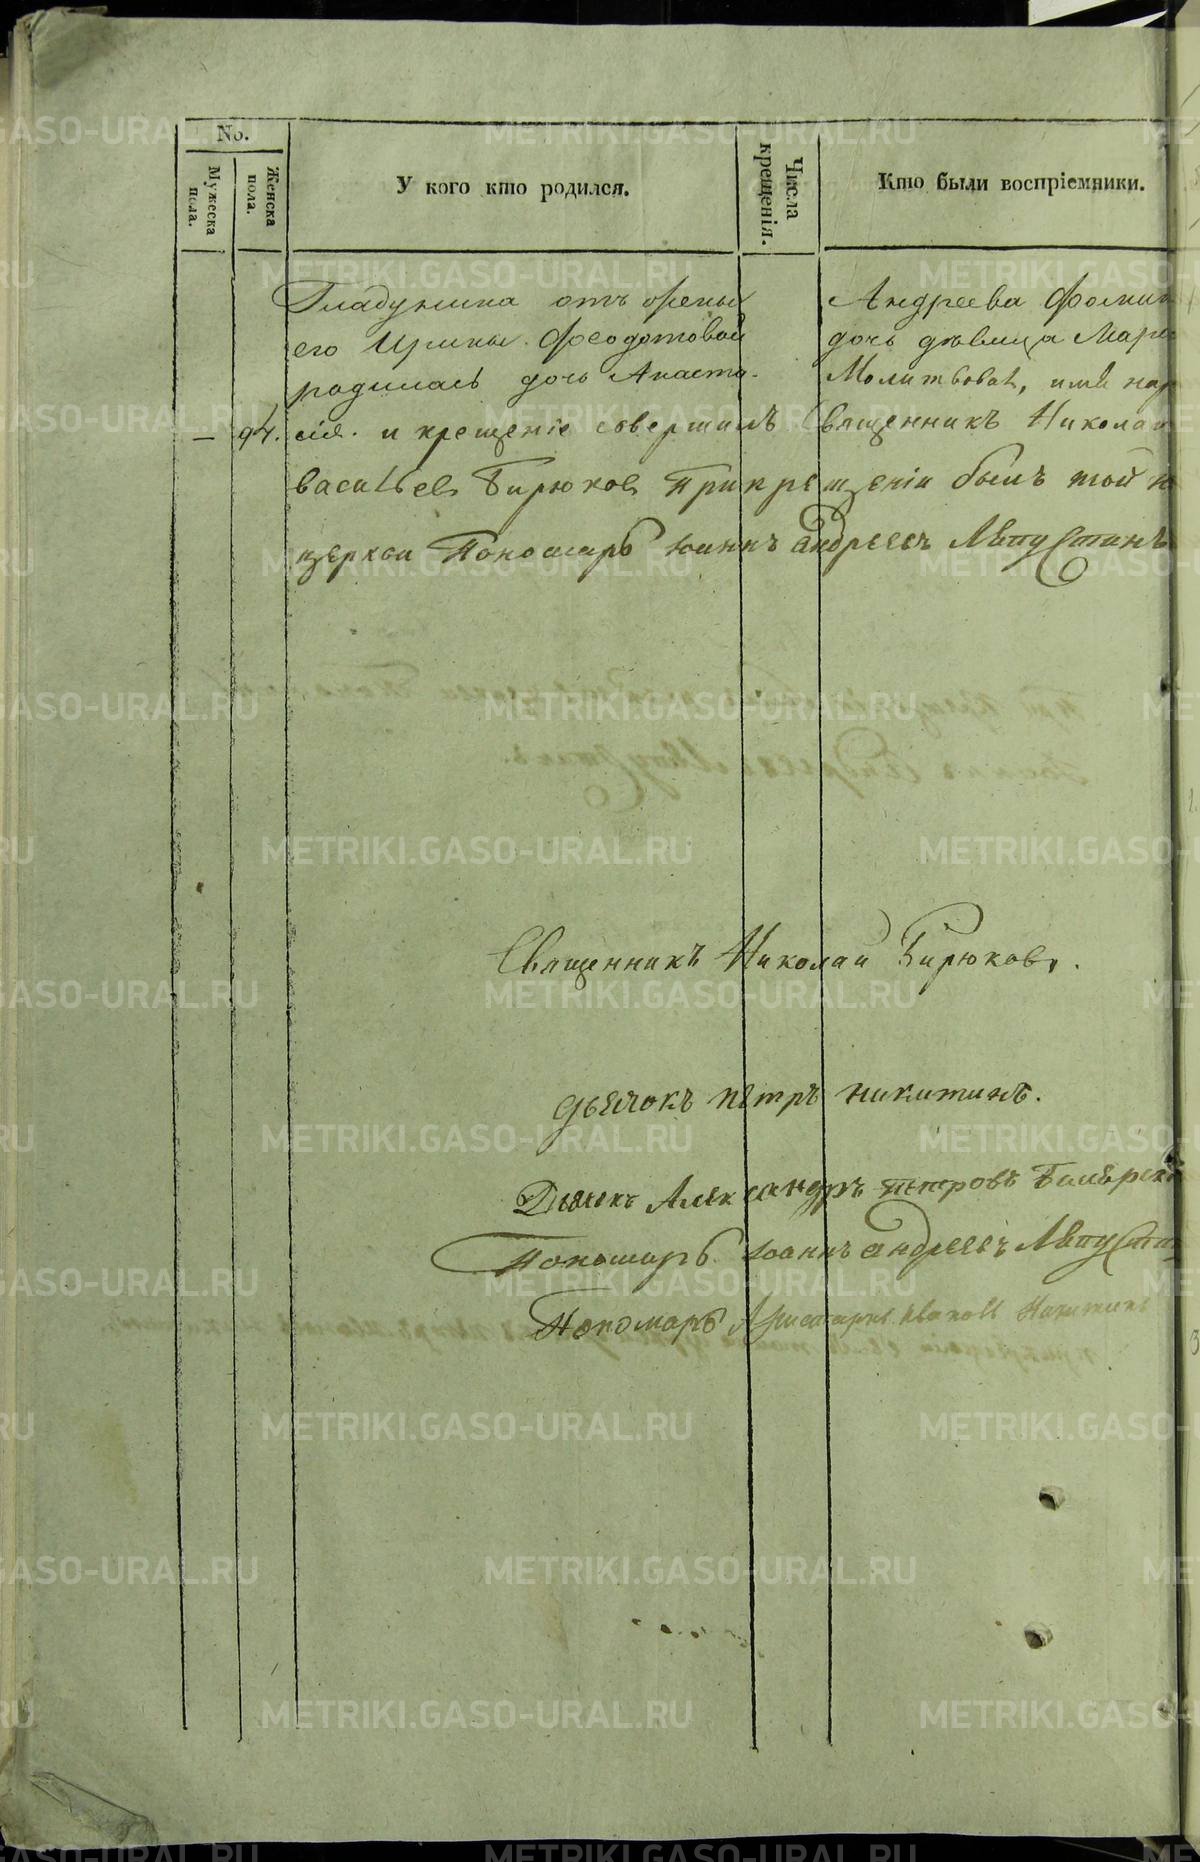 No.
Мужеска пола.
Женска пола.
У кого кто родился.
Числа крещенія.
Кто были воспріемники.
Гладунина отъ жены
его Ирины Феодотовой
родилась дочь Анаста-
— 94. сія. и крещеніе совершилъ Священникъ Николай
Васильев Бирюков При крещеніи былъ той
церкви Пономарь Іоаннъ Андреевъ
Андреева
дочь дѣвица
Молитвовал, имя нар
Священникъ Николай Бирюковъ.
Дьячокъ Петръ Никитинъ.
Дьячекъ Александръ Петровъ
Пономарь Іоаннъ Андреевъ
Пономарь Никитинъ
METRIKI.GASO-URAL.RU